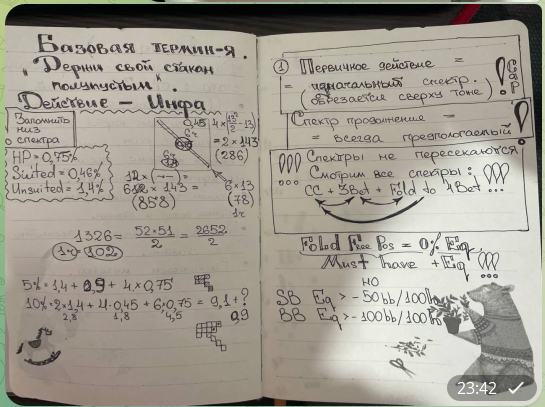 Базовая термин-я.
"Держи свой стакан
полупустым".
Действие – Инфа
Запомнить
низ
спектра
HP = 0,45%
Suited = 0,46%
Unsuited = 1,4%
0,45
= 2 × 143
(286)
6 × 13
(78)
1r
× 143 =
(858)
1326 = 52·51 / 2 = 2652 / 2
1r = 102
5% = 1,4 + 0,9 + 4 × 0,75
10% = 2×1,4 + 4·0,45 + 6×0,75 = 9,1 + ?
2,8 1,8 4,5 0,9
① Первичное действие =
= изначальный спектр.
(обрезается сверху тоже)
Cap
Спектр продолжения =
= всегда предполагаемый
Спектры не пересекаются
Смотрим все спектры:
CC + 3Bet + Fold to 4Bet ...
Fold Free Pos = 0% Eq.
Must have +Eq
но
SB Eq > -50bb/100h
BB Eq > -100bb/100h
23:42